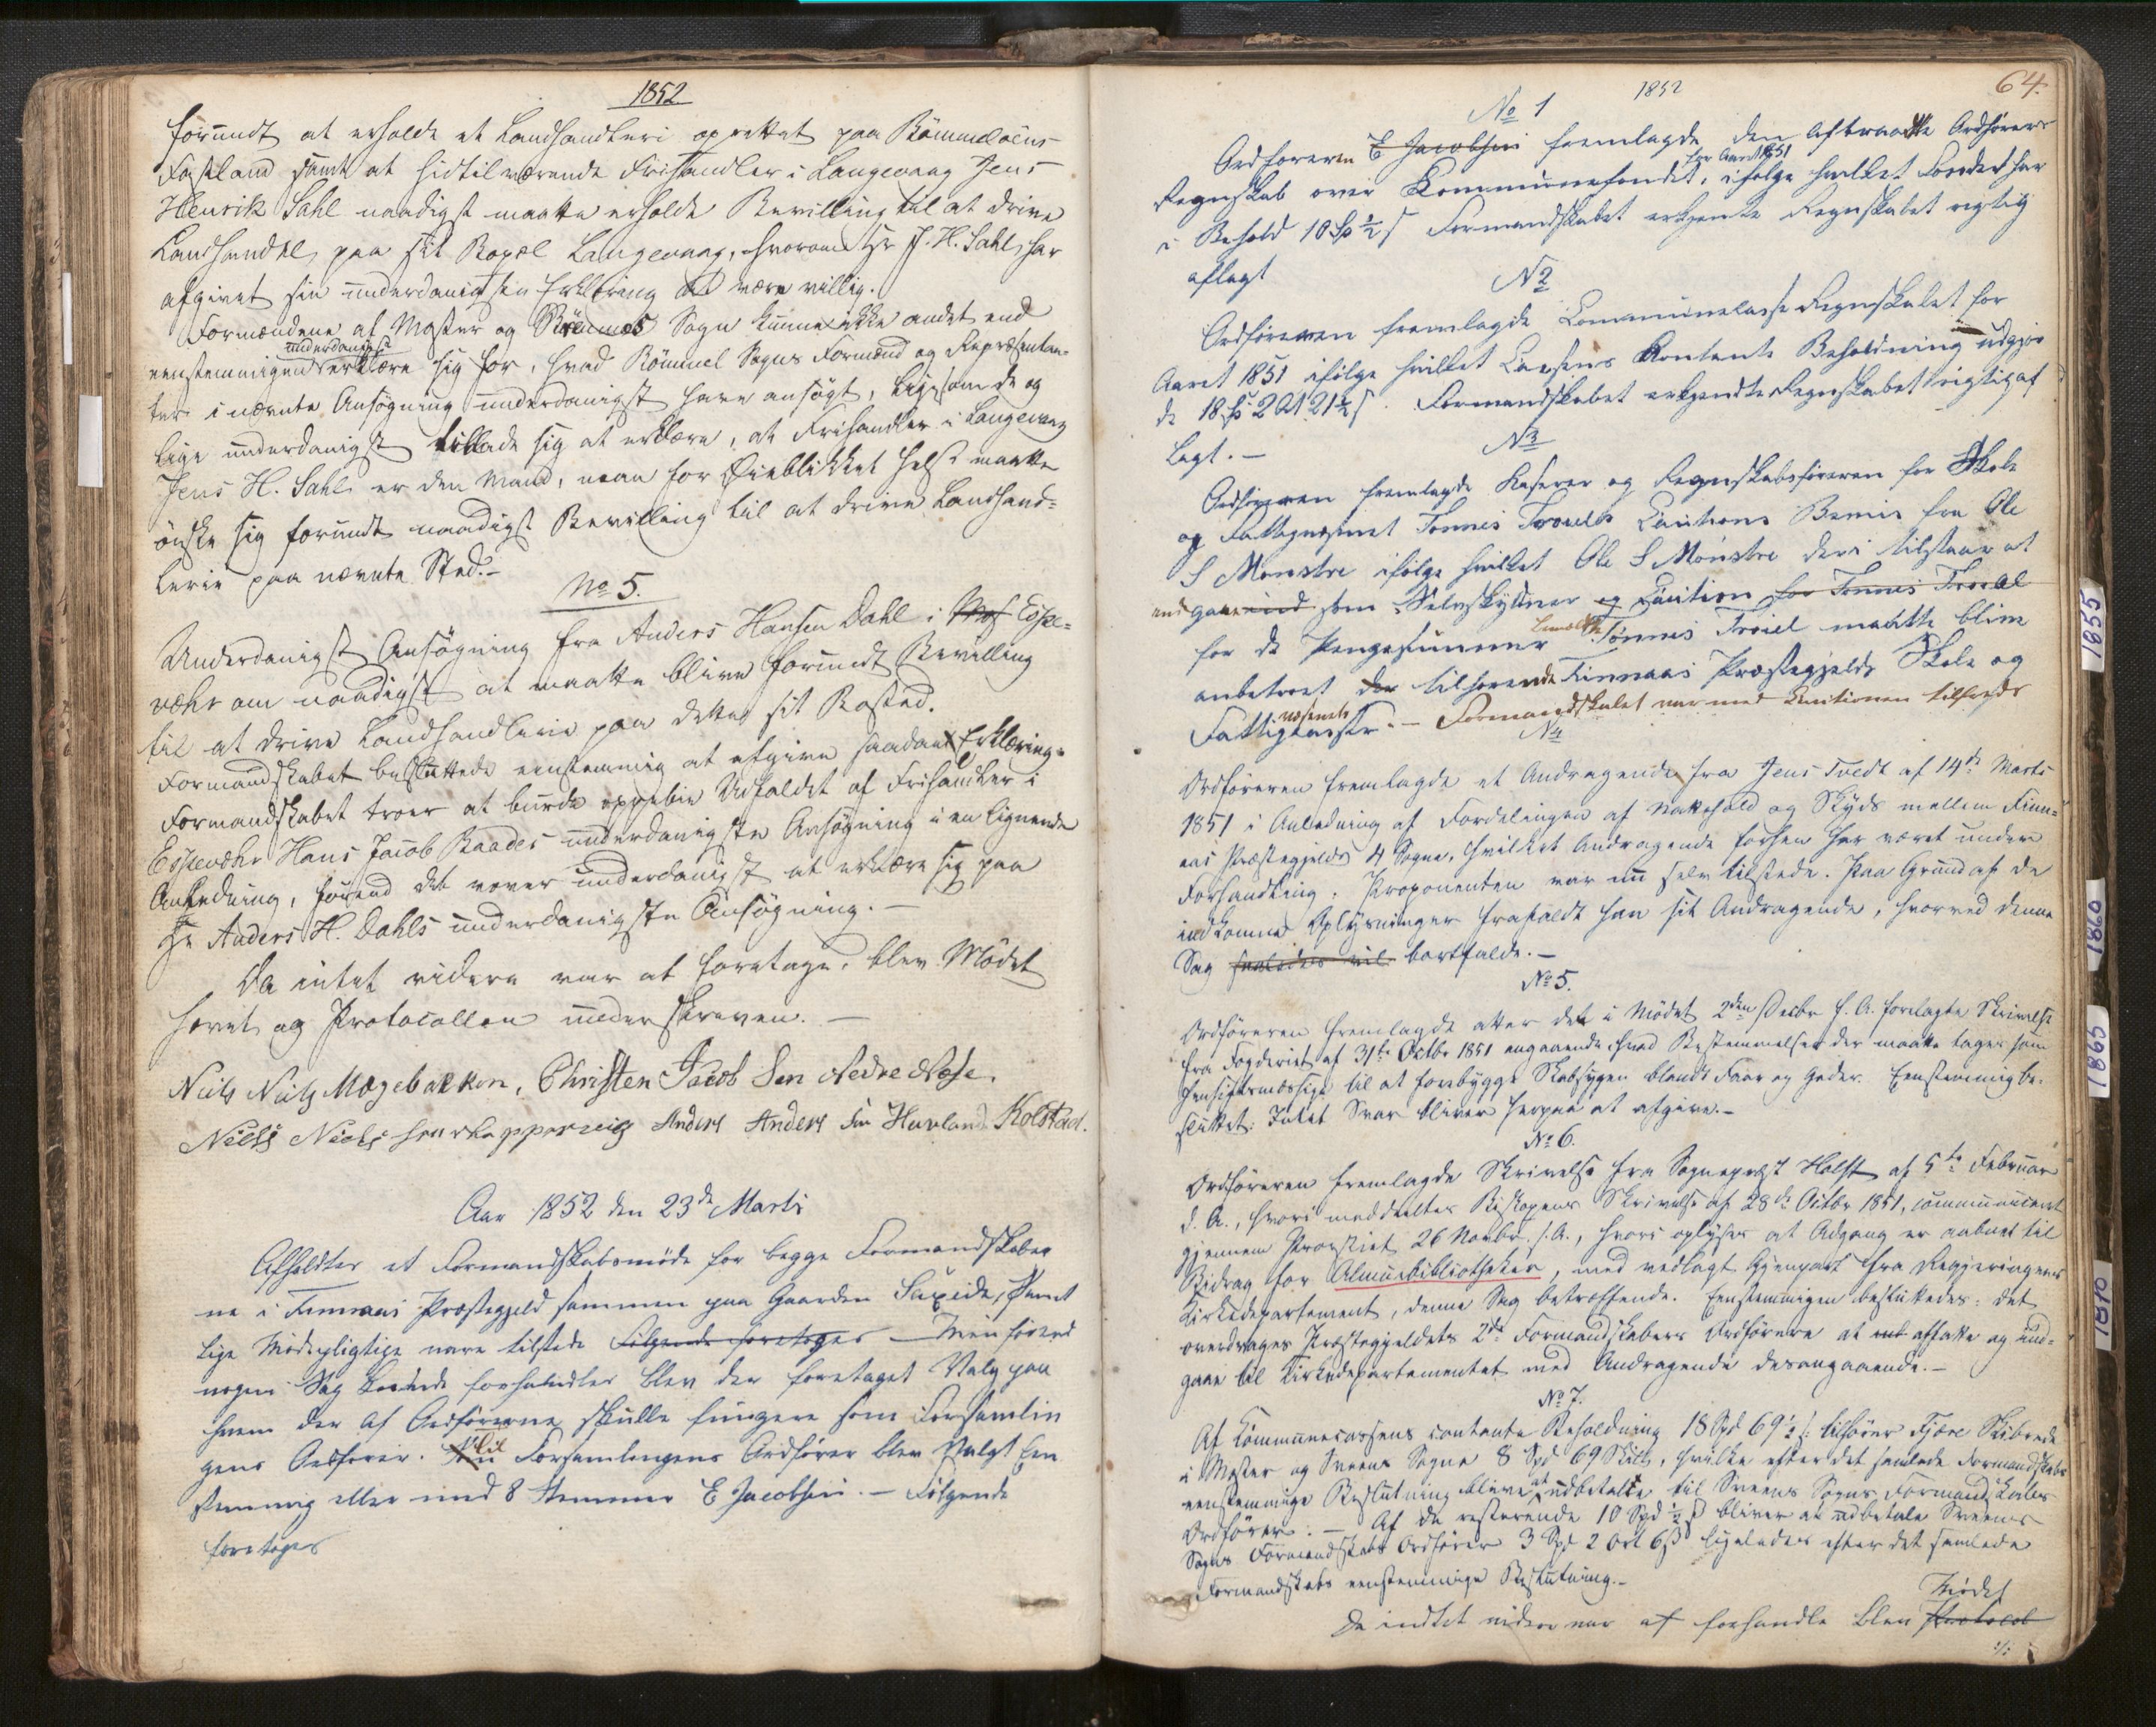 1852
forundt at erholde et Landhandleri oprettet paa Bömmeloens
Fastland samt at hidtilværende Frihandler i Langevaag Jens
Henrik Sahl naadigst maatte erholde Bevilling til at drive
Landhandel paa sit Bopæl Langevaag, hvorom Hr J. H. Sahl har
afgivet sin underdanigsten Erklæring at være villig.
Formændene af Moster og Sveens Sogn kunne ikke andet end
underdanigst
eenstemmigen erklære sig for, hvad Bömmel Sogns Formænd og Repræsentan-
ter i nævnte Ansögning underdanigst have ansögt, ligesom de og
lige underdanigst tillade sig at erklære, at Frihandler i Langevaag
Jens H. Sahl er den Mand, man for Öieblikket helst maatte
önske sig forundt naadigst Bevilling til at drive Landhand-
lerie paa nævnte Sted.-
No 5.
Underdanigst Ansögning fra Anders Hansen Dahl i Mos Espe-
væhr om naadigst at maatte blive forundt Bevilling
til at drive Landhandlerie paa dette sit Bosted.
Formandskabet besluttede eenstemmig at afgive saadan Erklæring:
Formandskabet troer at burde oppebie Udfaldet af Frihandler i
Espevæhr Hans Jacob Baades underdanigste Ansögning i en lignende
Anledning, förend det vover underdanigst at erklære sig paa
Hr Anders H. Dahls underdanigste Ansögning.-
Da intet videre var at foretage, blev Mödet
hævet og Protocollen underskreven.-
Niels Niels Mægebakken, Christen Jacob Sen Nedre Næse,
Niels Niels sen Anders Anders sen Havland Kolstad.
Aar 1852 den 23de Marts
Afholdtes et Formandskabsmöde for begge Formandskaber
ne i Finnaas Præstegjeld sammen paa Gaarden Siupeide, Samt
lige Mödepligtige vare tilstede Fölgende foretoges - Men förend
nogen Sag foretoges blev der foretaget Valg paa
hvem der af Ordförerne skulle fungere som Forsamlin
gens Ordförer. Til Forsamlingens Ordförer blev valgt Een
stemmig eller med 8 Stemmer E Jacobsen. - Fölgende
foretoges
1852
64.
No 1
Ordföreren E Jacobsen fremlagde den aftraadte Ordförers
for Aaret 1851
Regnskab over Kommunefondet, ifölge hvilket Fondet har
i Behold 10 Sp ½ s Formandskabet erkjendte Regnskabet rigtig
aflagt
No 2
Ordföreren fremlagde Communekasse Regnskabet for
Aaret 1851 ifölge hvilket Cassens Kontante Beholdning udgjör
de 18 Sp 2 Ort 21½ s. Formandskabet erkjendte Regnskabet rigtig af
lagt.-
No 3
Ordföreren fremlagde Kaserer og Regnskabsföreren for Skole
og Fattigvæsenet Tönnes Troels Cautions Beviis fra Ole
S Mönstre ifölge hvilket Ole S Mönstre deri tilstaar at
indgaae ind som Selvskyldner og Caution for Tönnes
for de Pengesummer Tönnes maatte blive
anbetroet der tilhörende Finnaas Præstegjelds Skole og
væsenets
Fattigkasse.- Formandskabet var med Cautionen tilfreds
No 4
Ordföreren fremlagde et Andragende fra Jens Tvedt af 14de Marts
1851 i Anledning af Fordelingen af Vakthold og Skyds mellem Finn-
aas Præstegjelds 4 Sogne, hvilket Andragende forhen har været under
Forhandling. Proponenten var nu selv tilstede. Paa Grund af de
indkomne Oplysninger frafaldt han sit Andragende, hvorved denne
Sag saaledes vil bortfalde.-
No 5.
Ordföreren fremlagde atter det i Mödet 2den Decbr f. A. forelagte Skrivelse
fra Fogderiet af 31te Octbr 1851 angaaende hvad Bestemmelser der maatte tages som
hensigtsmæssige til at forebygge Skabsygen blandt Faar og Geder. Eenstemmig be-
sluttet: Intet Svar bliver herpaa at afgive.-
No 6.
Ordföreren fremlagde Skrivelse fra Sognepræst Holst af 5te Februar
d. A., hvori meddeeltes Biskopens Skrivelse af 28de Octbr 1851, communiceret
gjennem Provstiet 26 Novbr. s. A., hvori oplyses at Adgang er aabnet til
Bidrag for Almuebibliotheker, med vedlagt Gjenpart fra Regjeringens
Kirkedepartement, denne Sag betræffende. Eenstemmigen besluttedes: det
overdrages Præstegjeldets 2de Formandskabers Ordförere at affatte og ind-
gaae til Kirkedepartementet med Andragende desangaaende.-
No 7.
Af Kommunecassens contante Beholdning 18 Spd 69½ s: tilhörer Fjære Skibrede
i Moster og Sveens Sogne 8 Spd 69 Skill, hvilke efter det samlede Formandskabs
eenstemmige Beslutning bliver at udbetale til Sveens Sogns Formandskabs
Ordförer.- Af de resterende 10 Spd ½ s bliver at udbetale Sveens
Sogns Formandskabs Ordförer 3 Spd 2 Ort 6 s ligeledes efter det samlede
Formandskabs eenstemmige Beslutning.-
Mödet
Da indtet videre var at forhandle blev Protocol
1855
1860
1865
1870